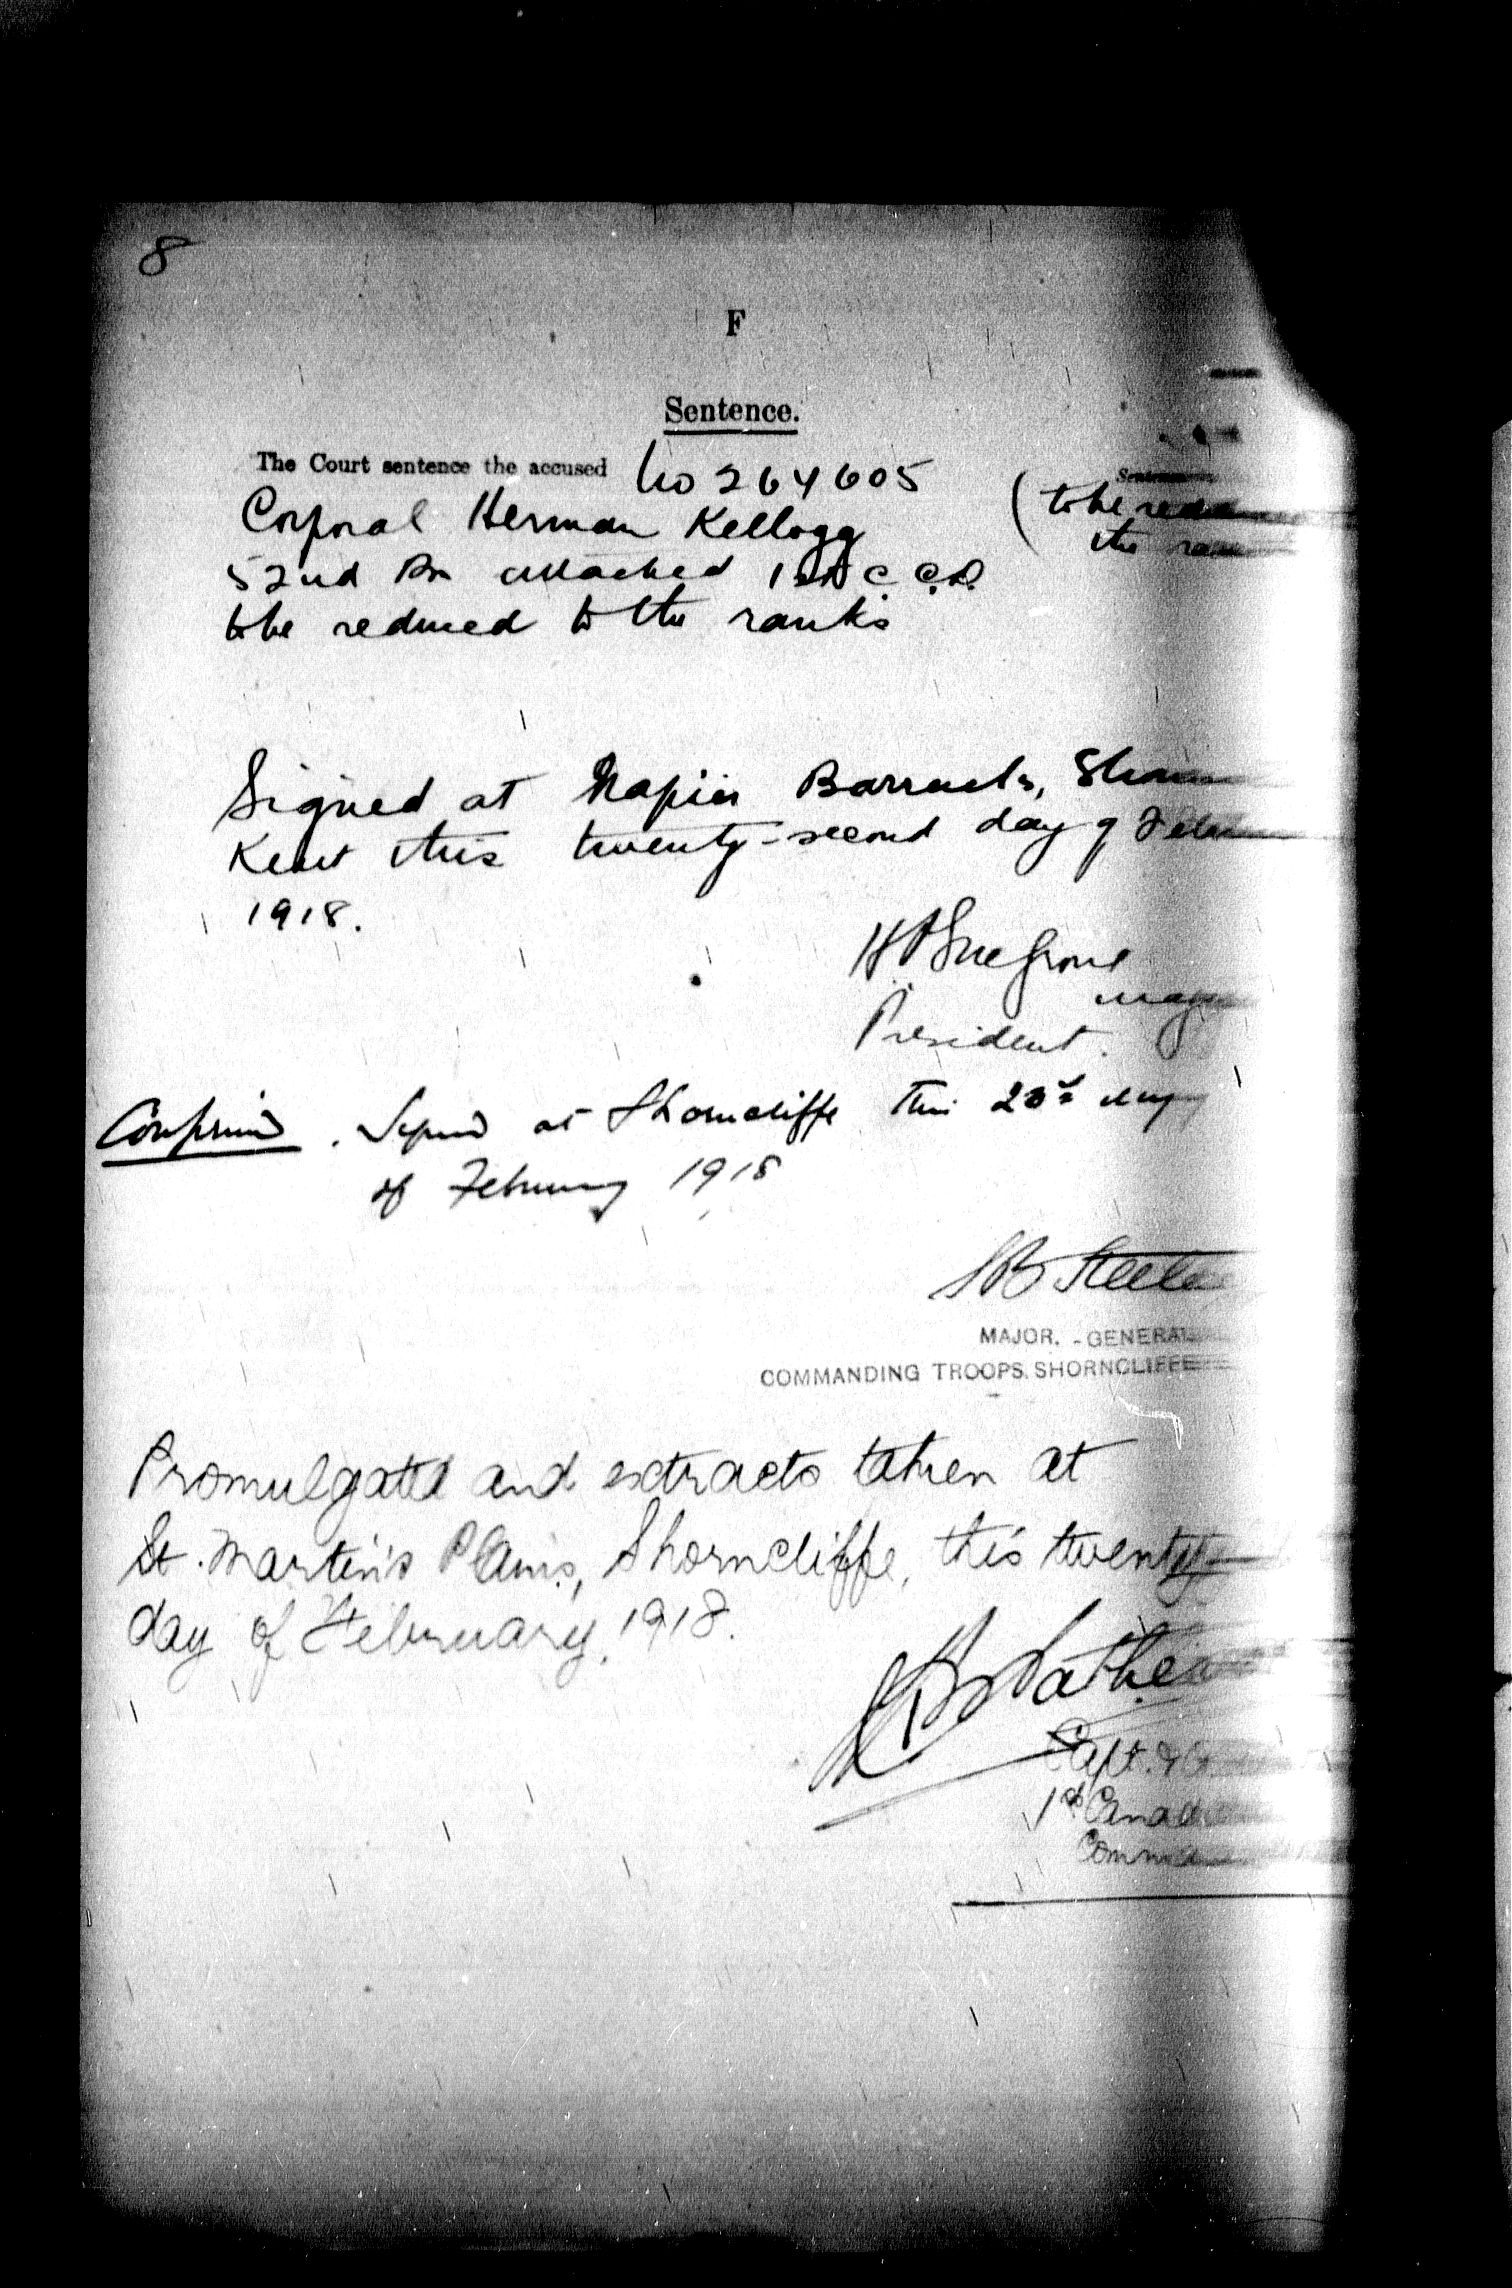 8
F
Sentence.
The Court sentence the accused No 264605
Corporal Herman Kellogg
52nd Bn attached 1st C.C.D.
to be reduced to the ranks
Sentence
(to be redu
the ran
Signed at Napier Barracks, Shorn
Kent this twenty-second day of Febru
1918.
Major
President.
Confirmed. Signed at Shorncliffe this 23rd day
of February 1918
SB Steele
MAJOR. - GENERAL
COMMANDING TROOPS. SHORNCLIFFE
Promulgated and extracts taken at
St. Martin's Plains, Shorncliffe, this twenty-
day of February, 1918.
Capt. &
1st Canad
Comma